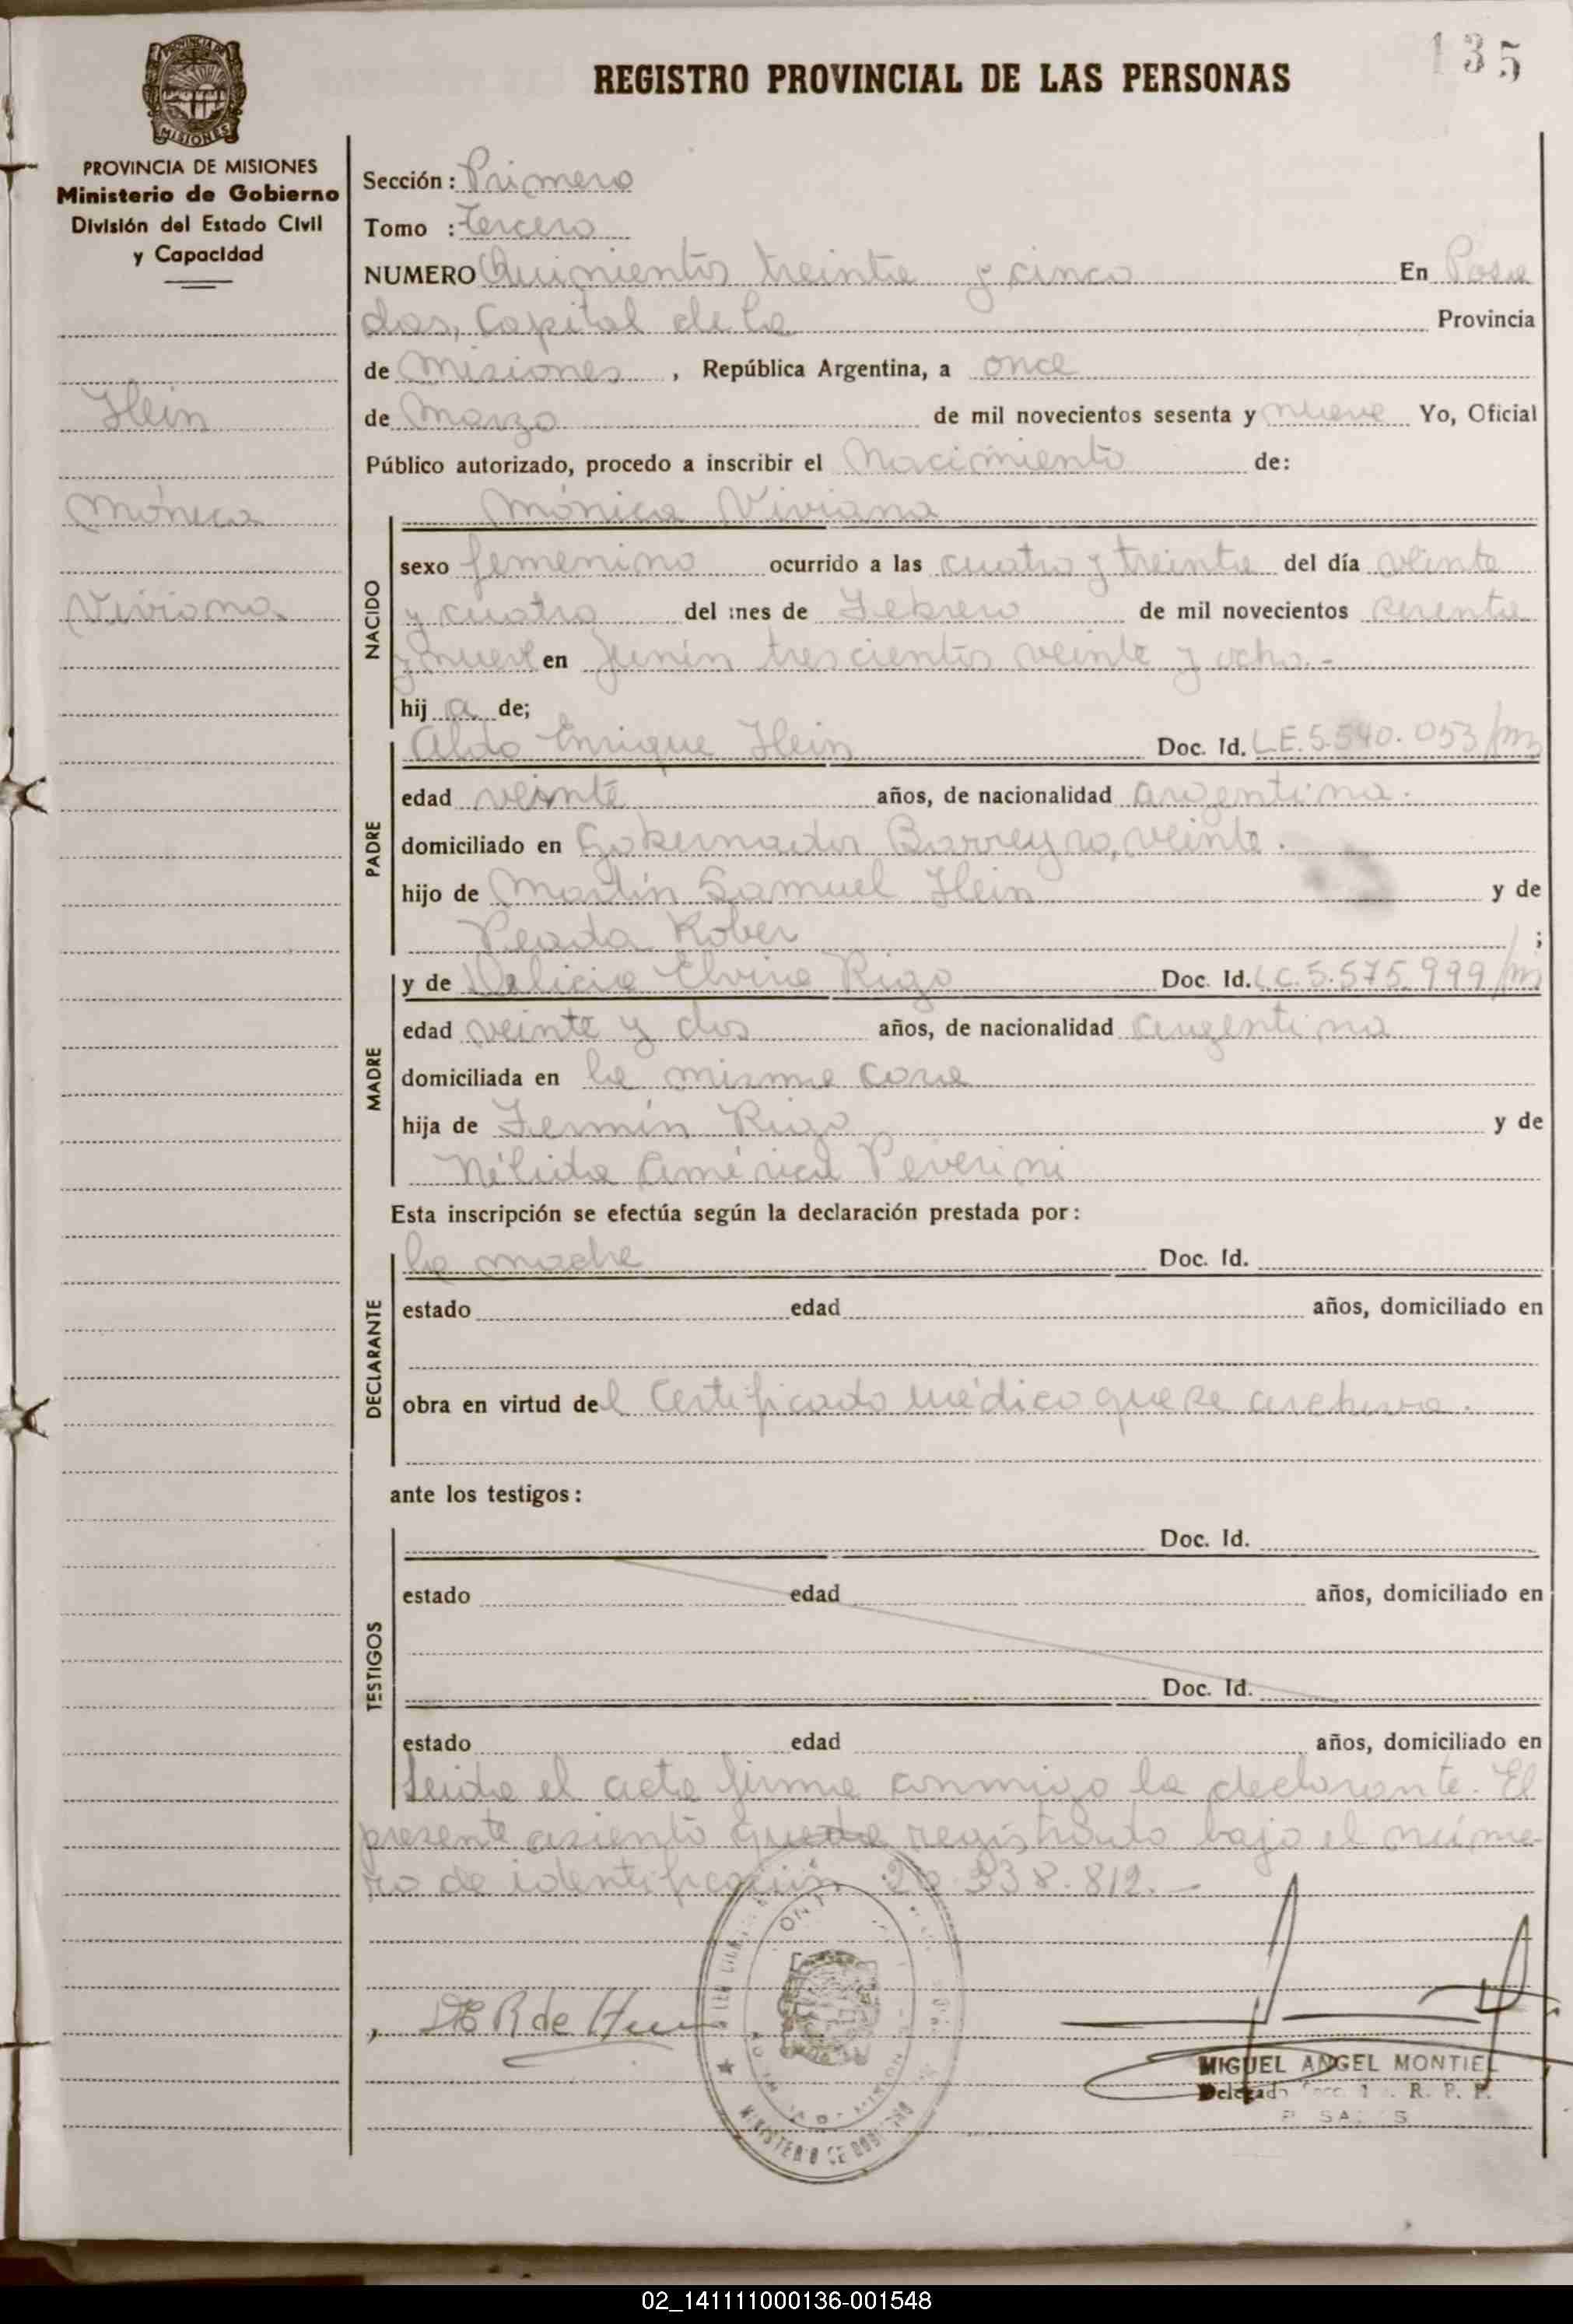 135
REGISTRO PROVINCIAL DE LAS PERSONAS
PROVINCIA DE MISIONES
Ministerio de Gobierno
División del Estado Civil
y Capacidad
Hein
Mónica
Viviana
Sección: Primero
Tomo : tercero
NUMERO Quinientos treinta y cinco En Posa
das, Capital de la Provincia
de Misiones, República Argentina, a once
de Marzo de mil novecientos sesenta y nueve Yo, Oficial
Público autorizado, procedo a inscribir el Nacimiento de:
NACIDO
Mónica Viviana
sexo femenino ocurrido a las cuatro y treinta del día veinte
y cuatro del mes de Febrero de mil novecientos sesenta
y nueve en Junín trescientos veinte y ocho.-
hij a de;
PADRE
Aldo Enrique Hein Doc. Id. L.E. 5.540.053/m
edad veinte años, de nacionalidad argentina.
domiciliado en Gobernador Barreyro, veinte.
hijo de Martín Samuel Hein y de
Kober ;
MADRE
y de Elvira Rigo Doc. Id. L.C. 5.575.999/m
edad veinte y dos años, de nacionalidad argentina
domiciliada en la misma casa
hija de Fermín Rigo y de
Nélida América Peverini
Esta inscripción se efectúa según la declaración prestada por:
DECLARANTE
la madre Doc. Id.
estado edad años, domiciliado en
obra en virtud del Certificado médico que se archiva.
ante los testigos:
TESTIGOS
Doc. Id.
estado edad años, domiciliado en
Doc. Id.
estado edad años, domiciliado en
Leída el acta firma conmigo la declarante. El
presente asiento queda registrado bajo el núme-
ro de identificación 20.338.812.-
R de
MINISTERIO DE GOBIERNO
MIGUEL ANGEL MONTIEL
Delegado Secc. 1 . R. P. P.
POSADAS
02_141111000136-001548